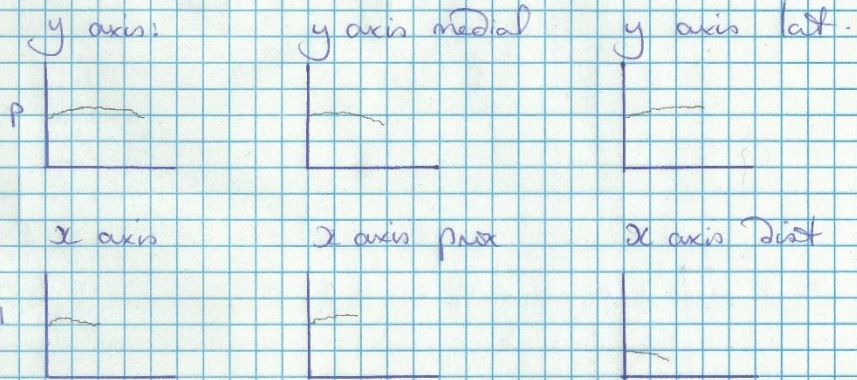 y axis: y axis medial y axis lat.
p
x axis x axis prox x axis dist